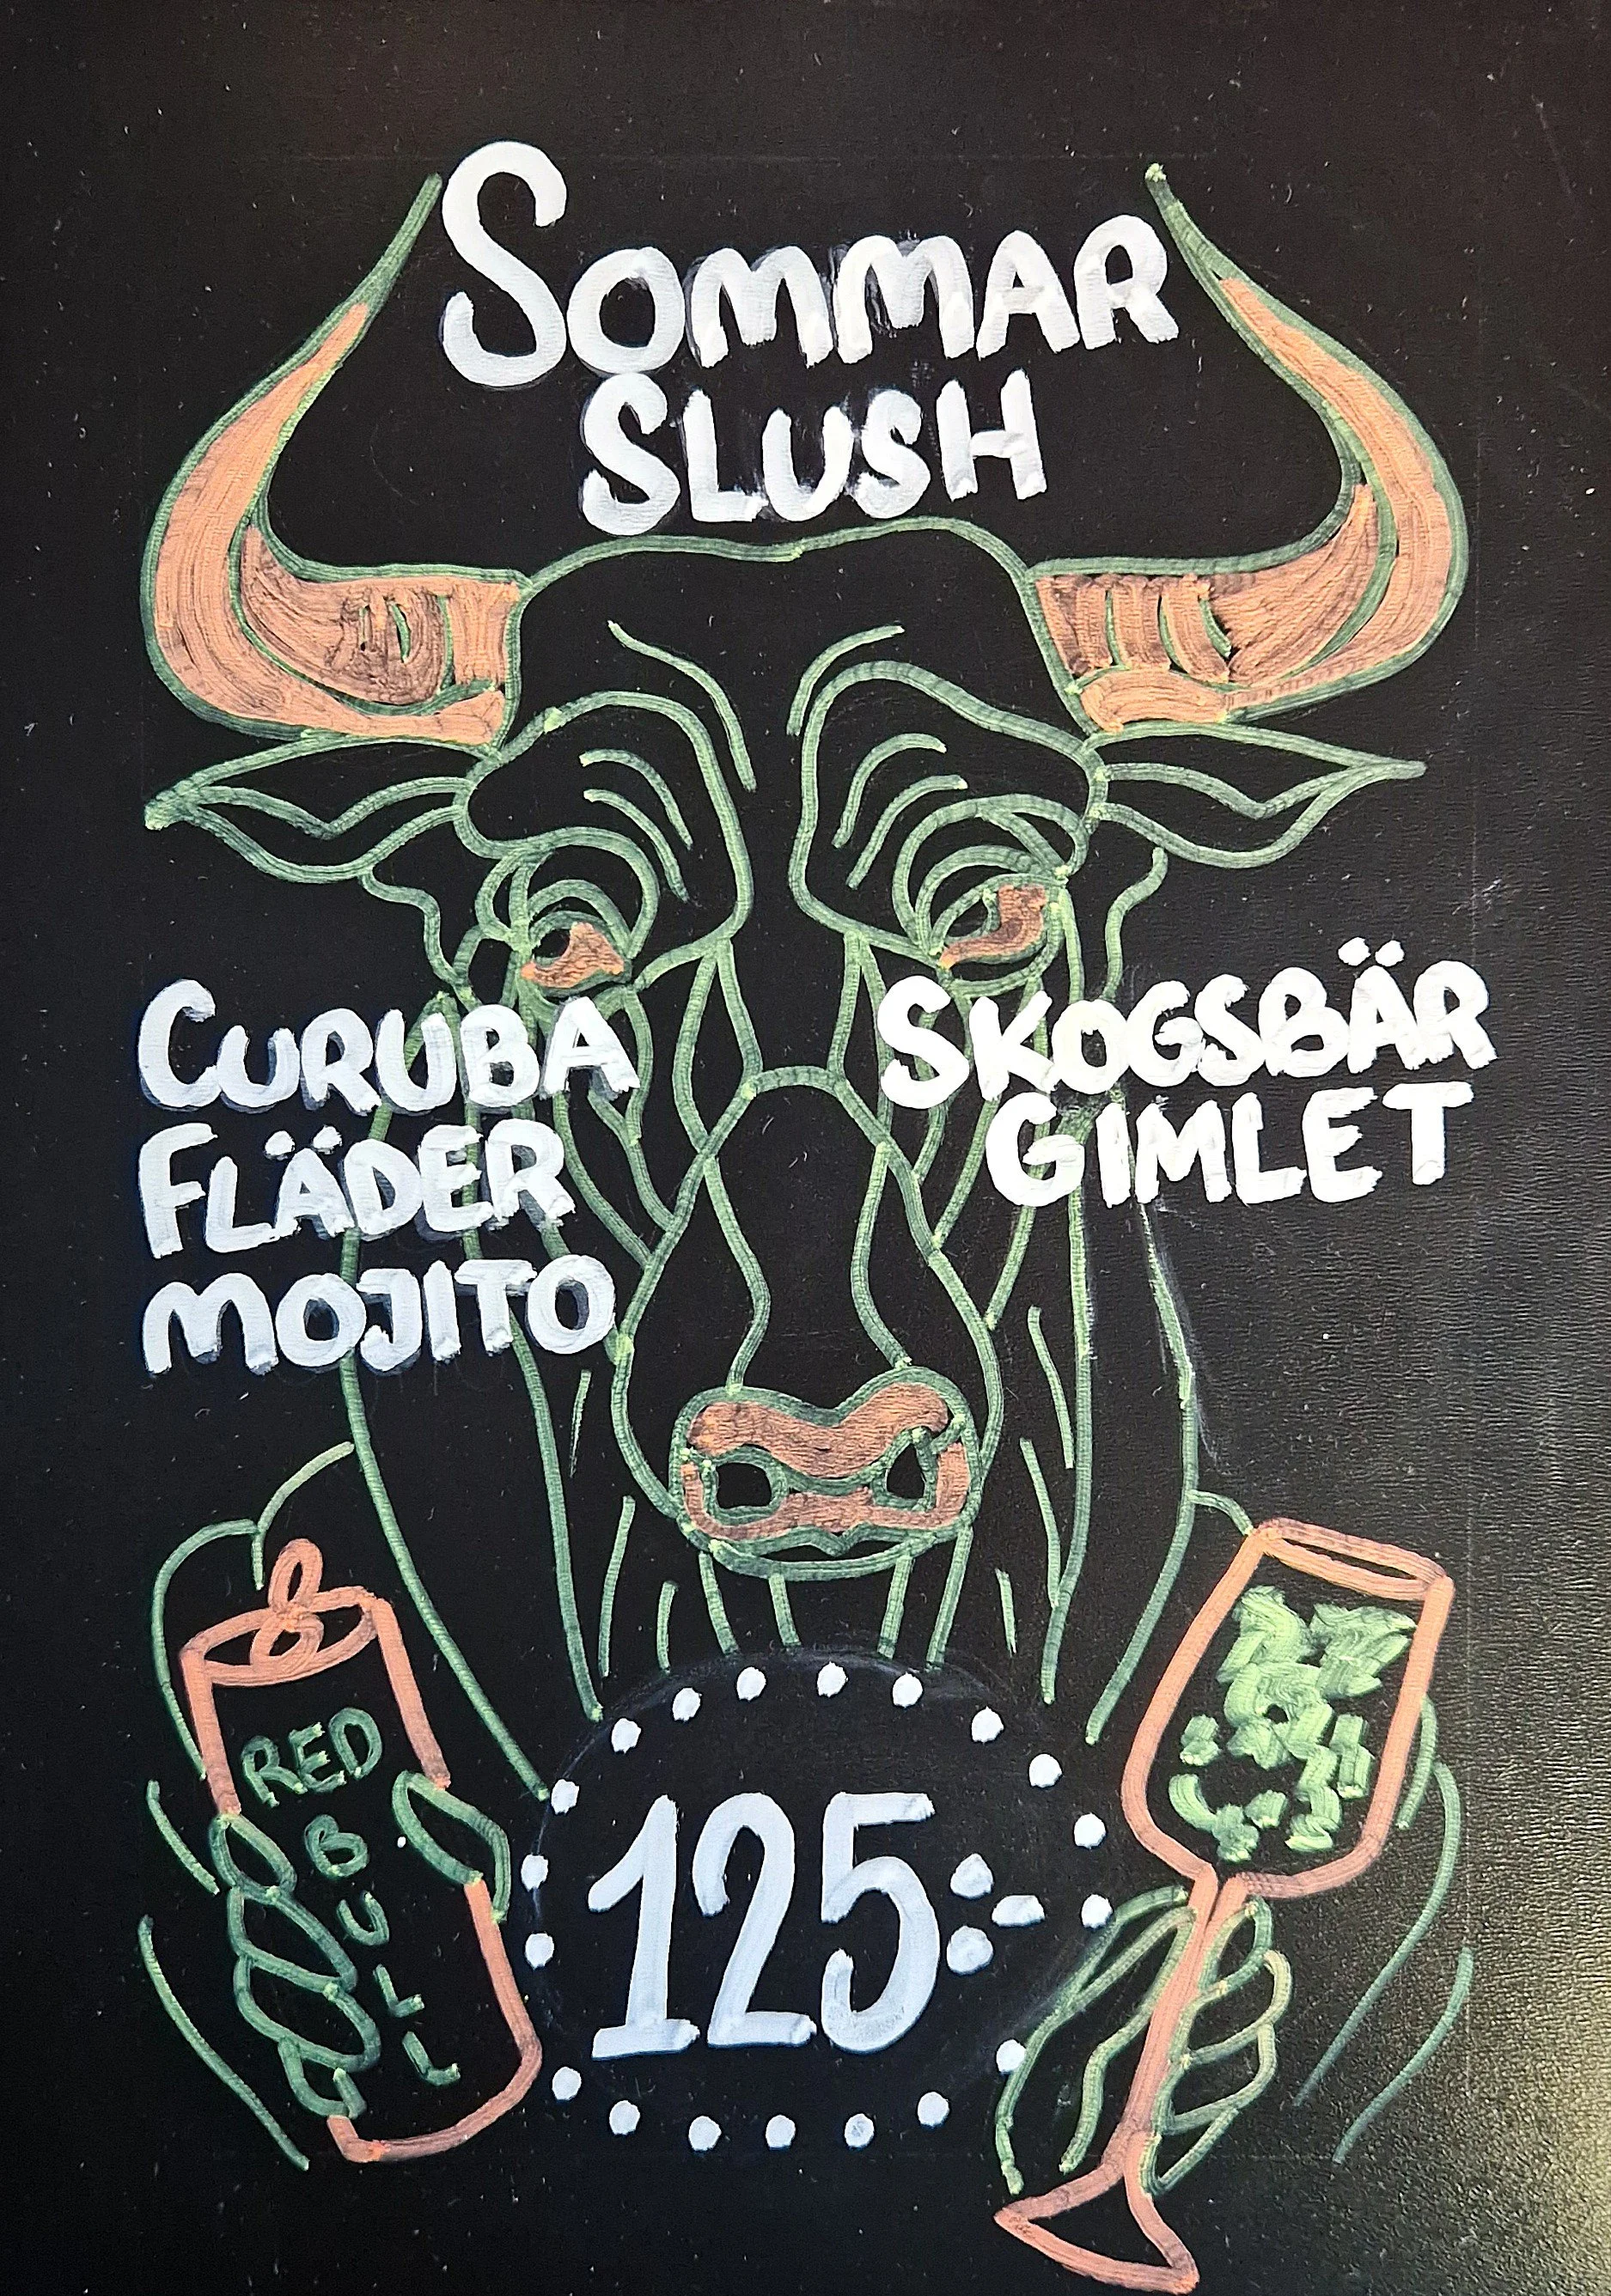 SOMMAR
SLUSH
CURUBA
FLÄDER
MOJITO
SKOGSBÄR
GIMLET
RED
BULL
125:-